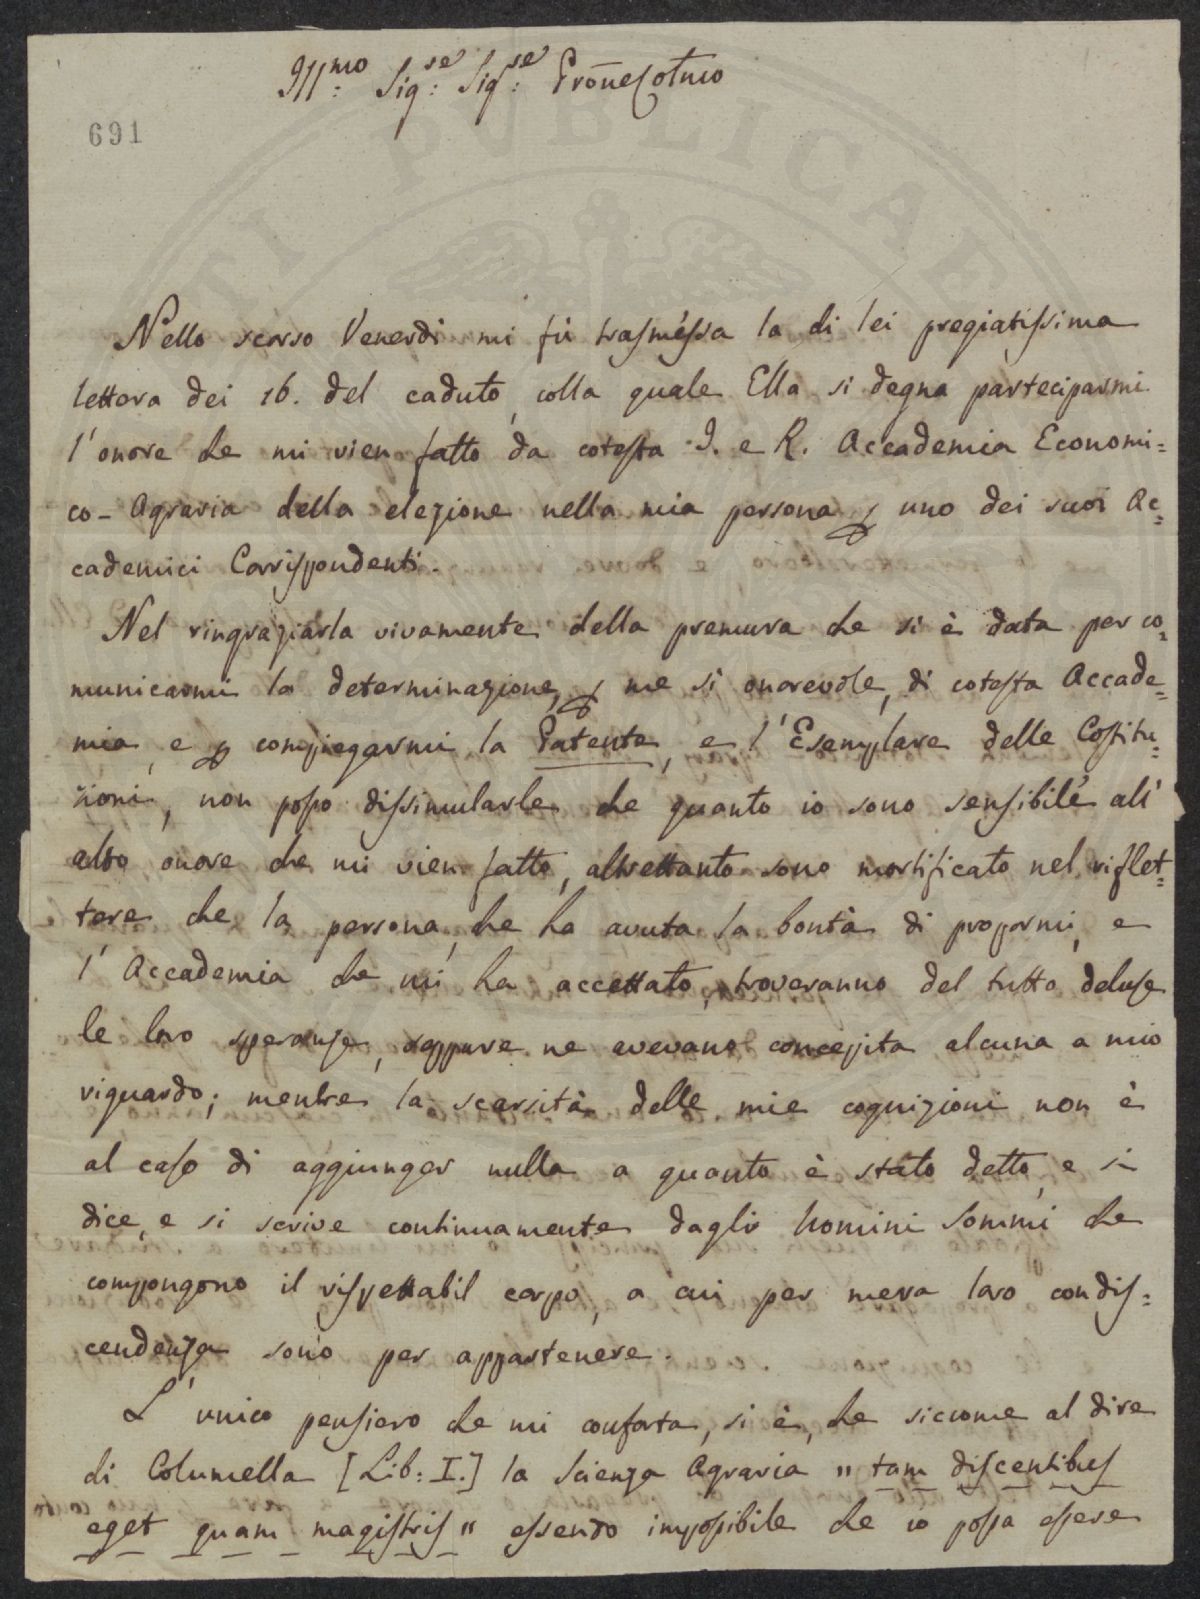 Ill:mo Sig:re Sig:re Prōne Colmo
691
Nello scorso Venerdì mi fù trasmessa la di lei pregiatissima
lettera dei 16. del caduto, colla quale Ella si degna parteciparmi
l'onore che mi vien fatto da cotesta I. e R. Accademia Economi=
co-Agraria della elezione nella mia persona p uno dei suoi Ac=
cademici Corrispondenti.
Nel ringraziarla vivamente della premura che si è data per co=
municarmi la determinazione, p me sì onorevole, di cotesta Accade=
mia, e p compiegarmi la Patente, e l'Esemplare delle Costitu=
zioni, non posso dissimularle che quanto io sono sensibile all'
alto onore che mi vien fatto, altrettanto sono mortificato nel riflet=
tere che la persona, che ha avuta la bontà di propormi, e
l'Accademia che mi ha accettato, troveranno del tutto deluse
le loro speranze, seppure ne avevano concepita alcuna a mio
riguardo; mentre la scarsità delle mie cognizioni non è
al caso di aggiunger nulla a quanto è stato detto, e si
dice, e si scrive continuamente dagli Uomini Sommi che
compongono il rispettabil corpo, a cui per mera loro condis=
cendenza sono per appartenere.
L'unico pensiero che mi conforta, si è, che siccome al dire
di Columella [Lib: I.] la Scienza Agraria "tam discentibus
eget quam magistris" essendo impossibile che io possa essere